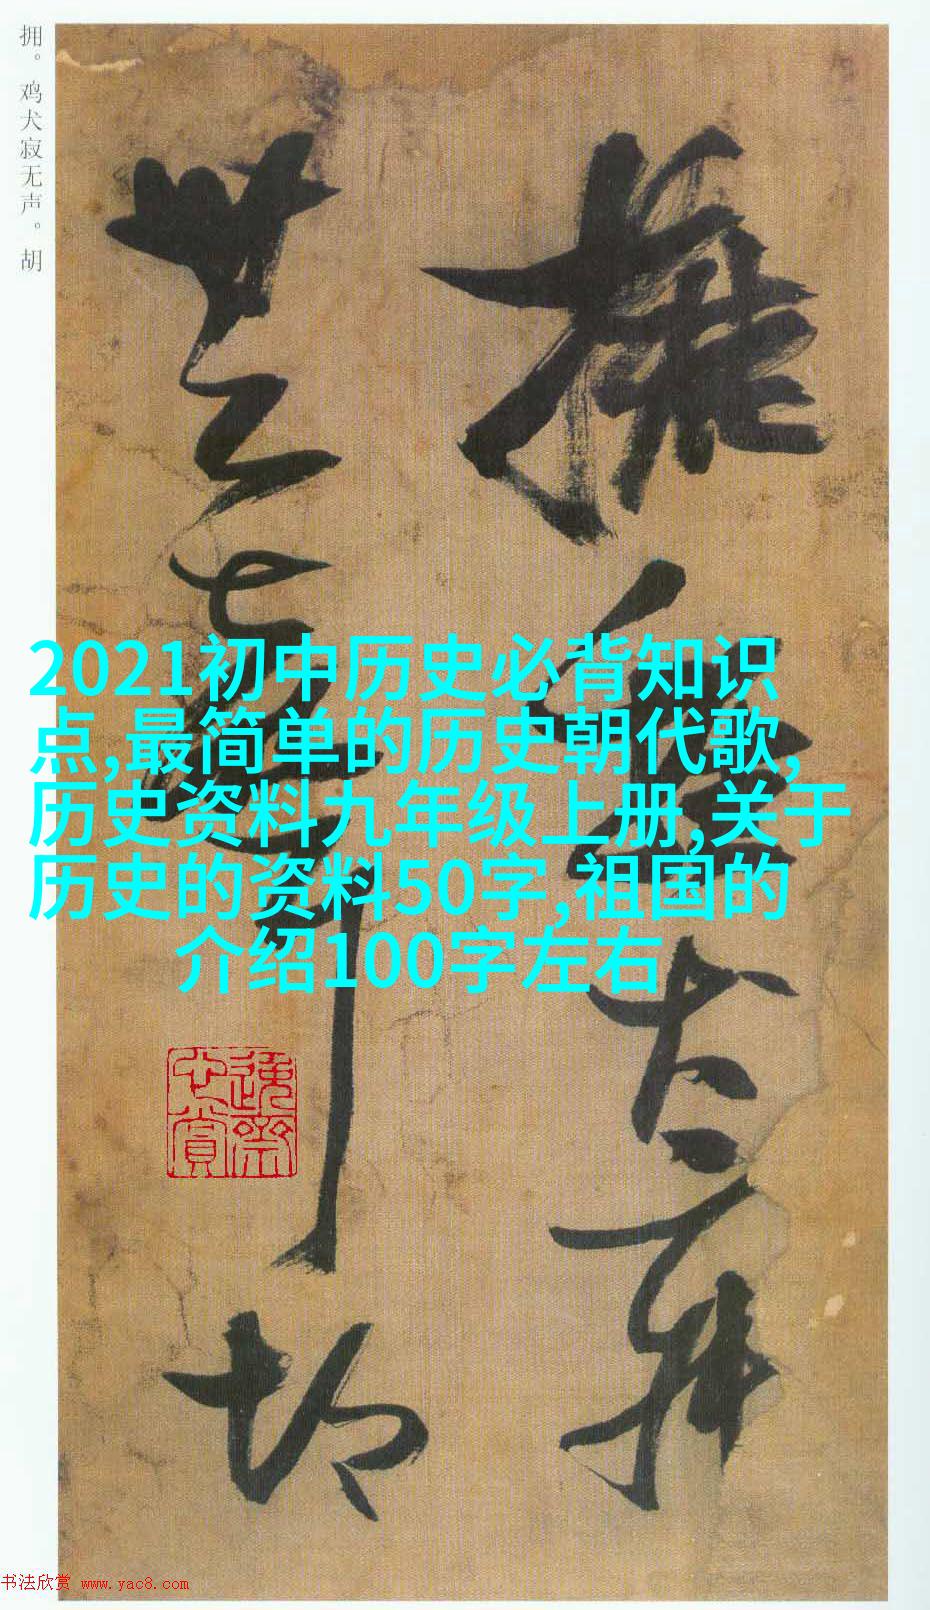 拥。鸡犬寂无声。胡
擁鷄犬寂
無聲胡
2021初中历史必背知识
点,最简单的历史朝代歌,
历史资料九年级上册,关于
历史的资料50字,祖国的
介绍100字左右
书法欣赏 www.yac8.com